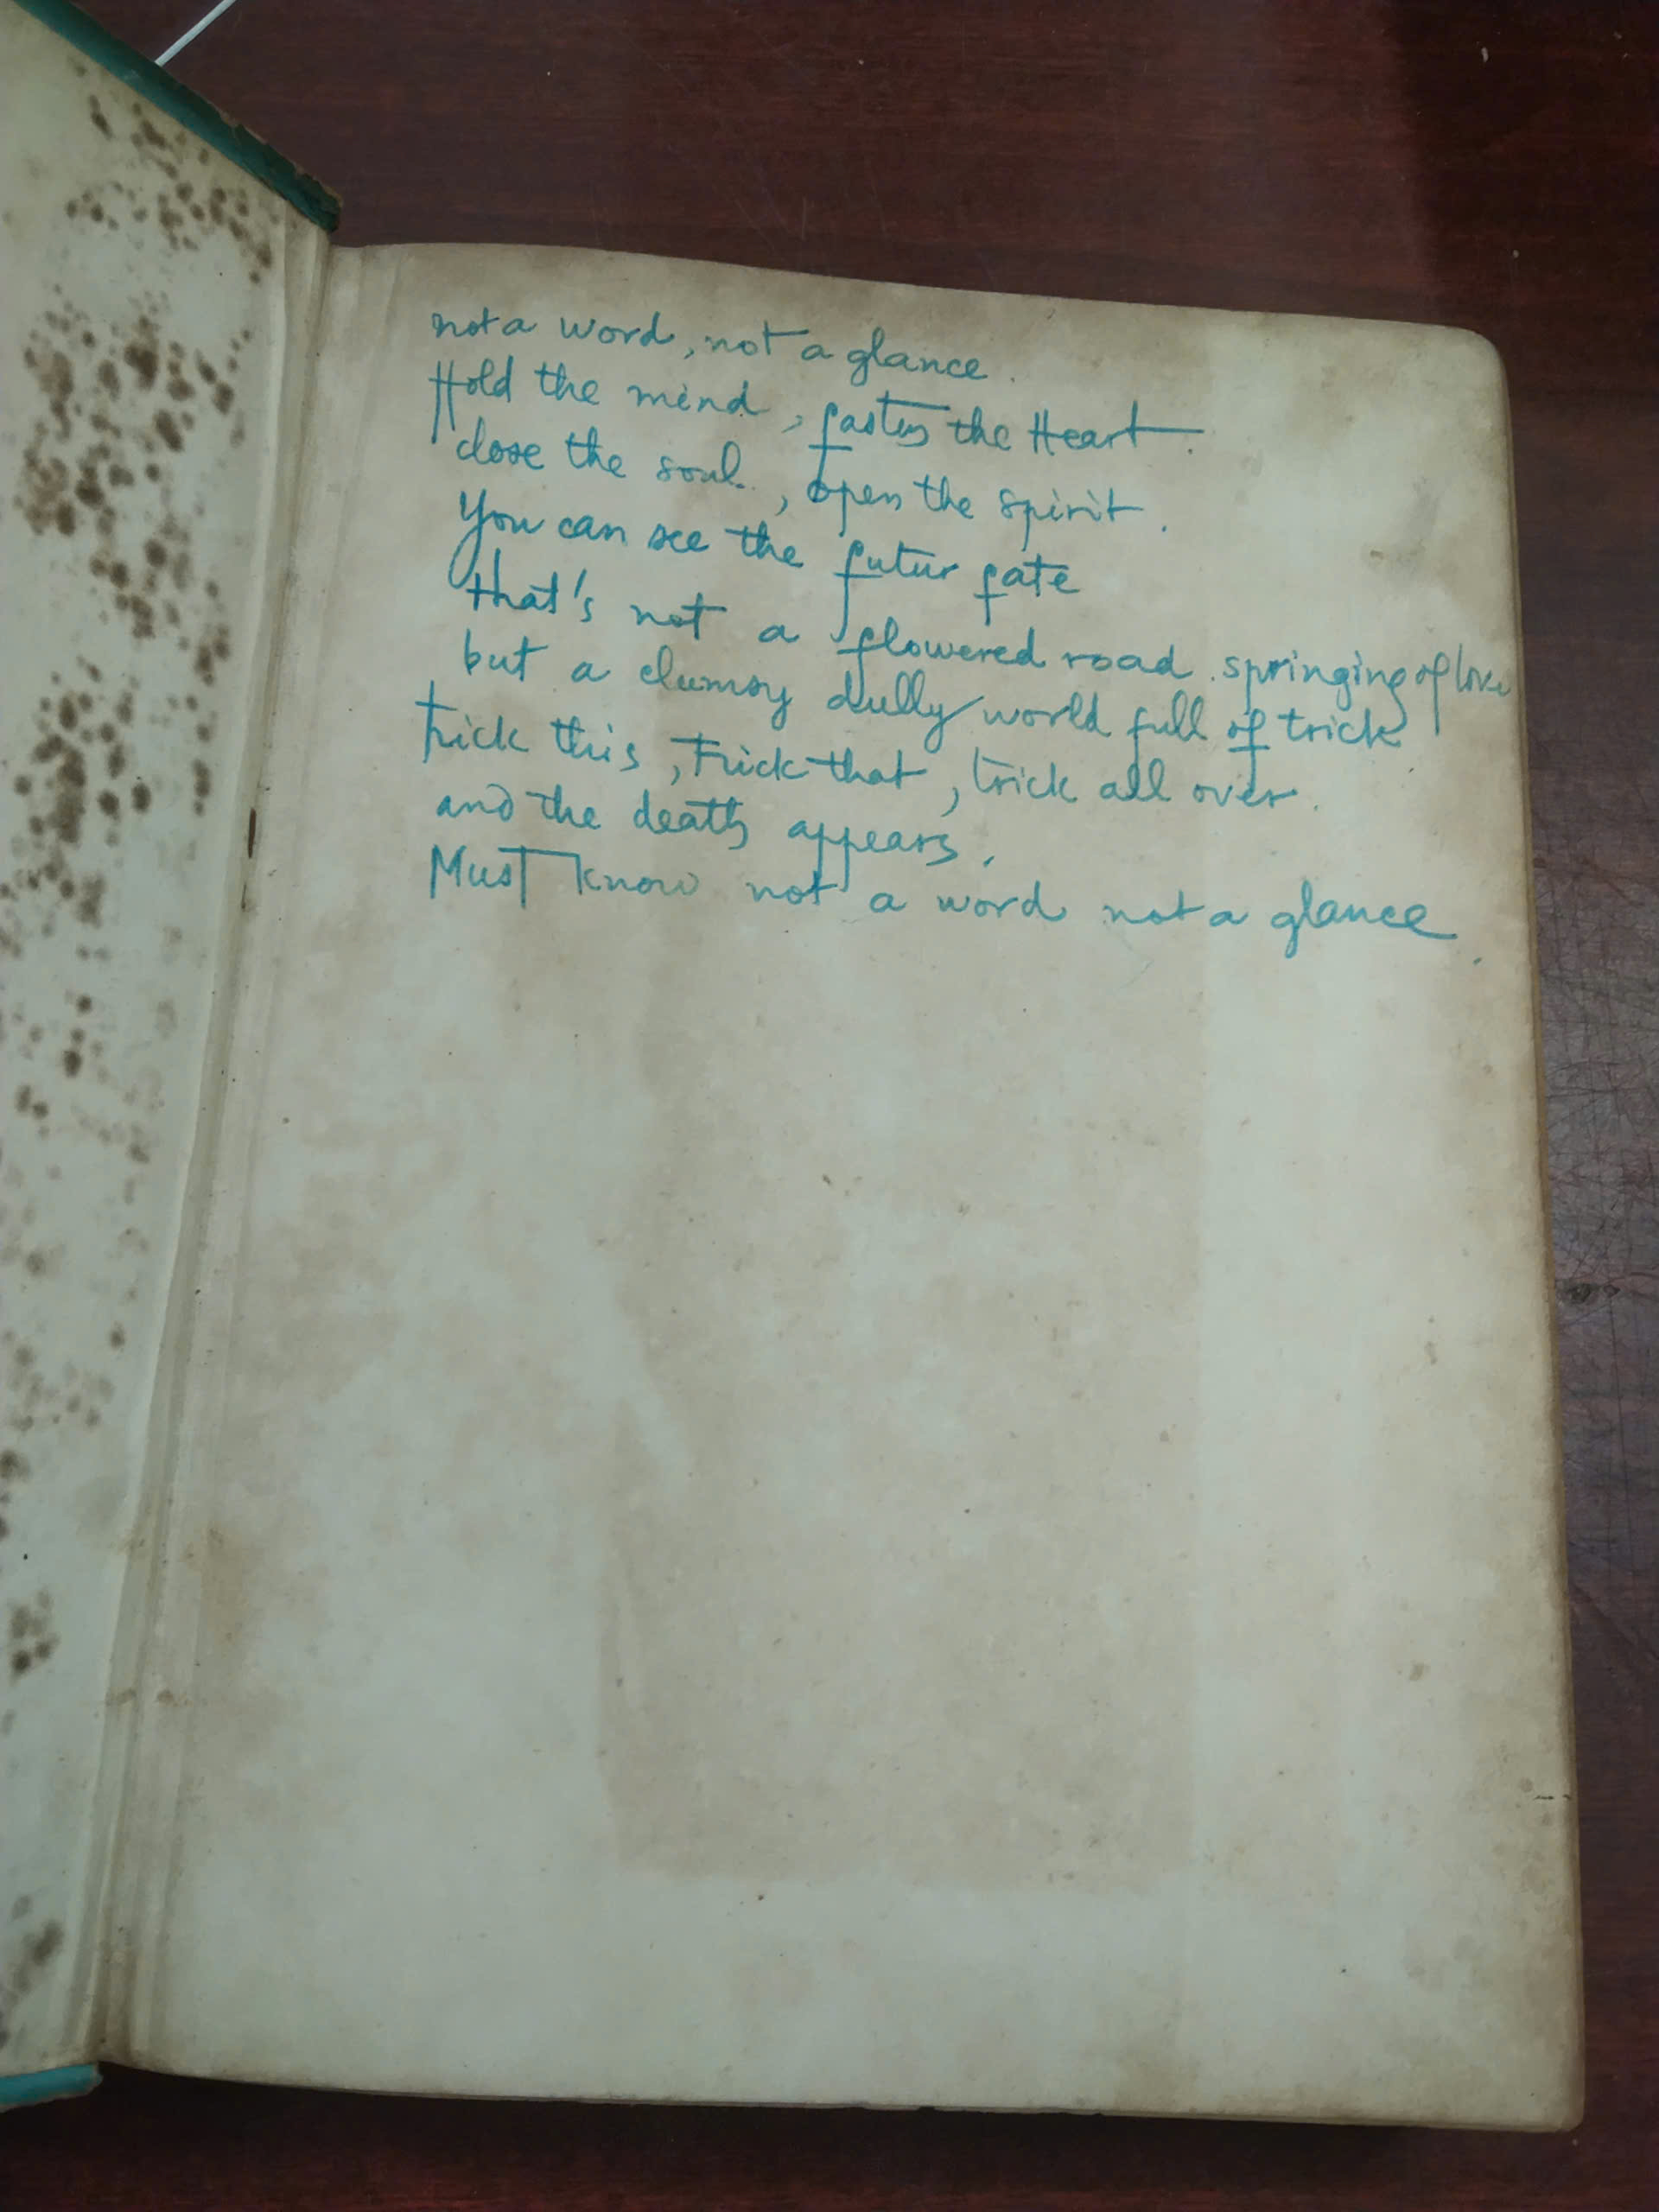 not a word, not a glance.
Hold the mind, fasten the Heart.
close the soul., open the spirit.
You can see the futur fate
that's not a flowered road springing of love
but a clumsy dully world full of trick
trick this, trick that, trick all over.
and the death appears.
Must know not a word not a glance.